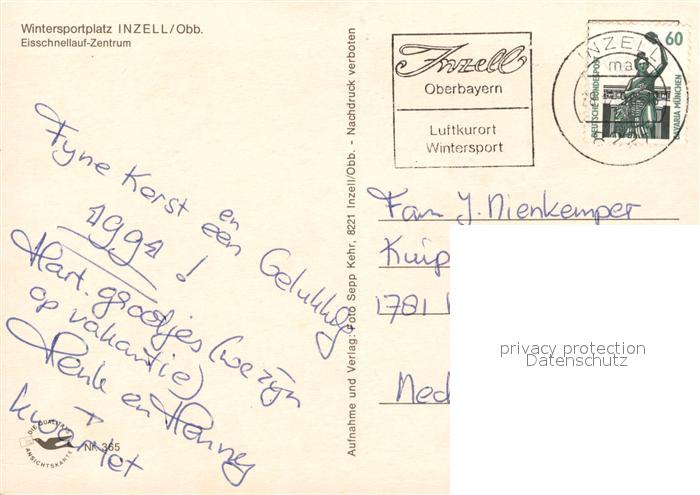 Wintersportplatz INZELL/Obb.
Eisschnellauf-Zentrum
Fyne Kerst en
een Gelukkig
1991!
Hart. groetjes (we zijn
op vakantie)
Henk en Henney
+
kwartet
DIE QUALITÄTS
ANSICHTSKARTE
Nr. 365
Aufnahme und Verlag: Foto Sepp Kehr, 8221 Inzell/Obb. - Nachdruck verboten
Inzell
Oberbayern
Luftkurort
Wintersport
INZELL
ma
60
DEUTSCHE BUNDESPOST
BAVARIA MÜNCHEN
Fam J. Nienkemper
Kuip
1781
Ned
privacy protection
Datenschutz